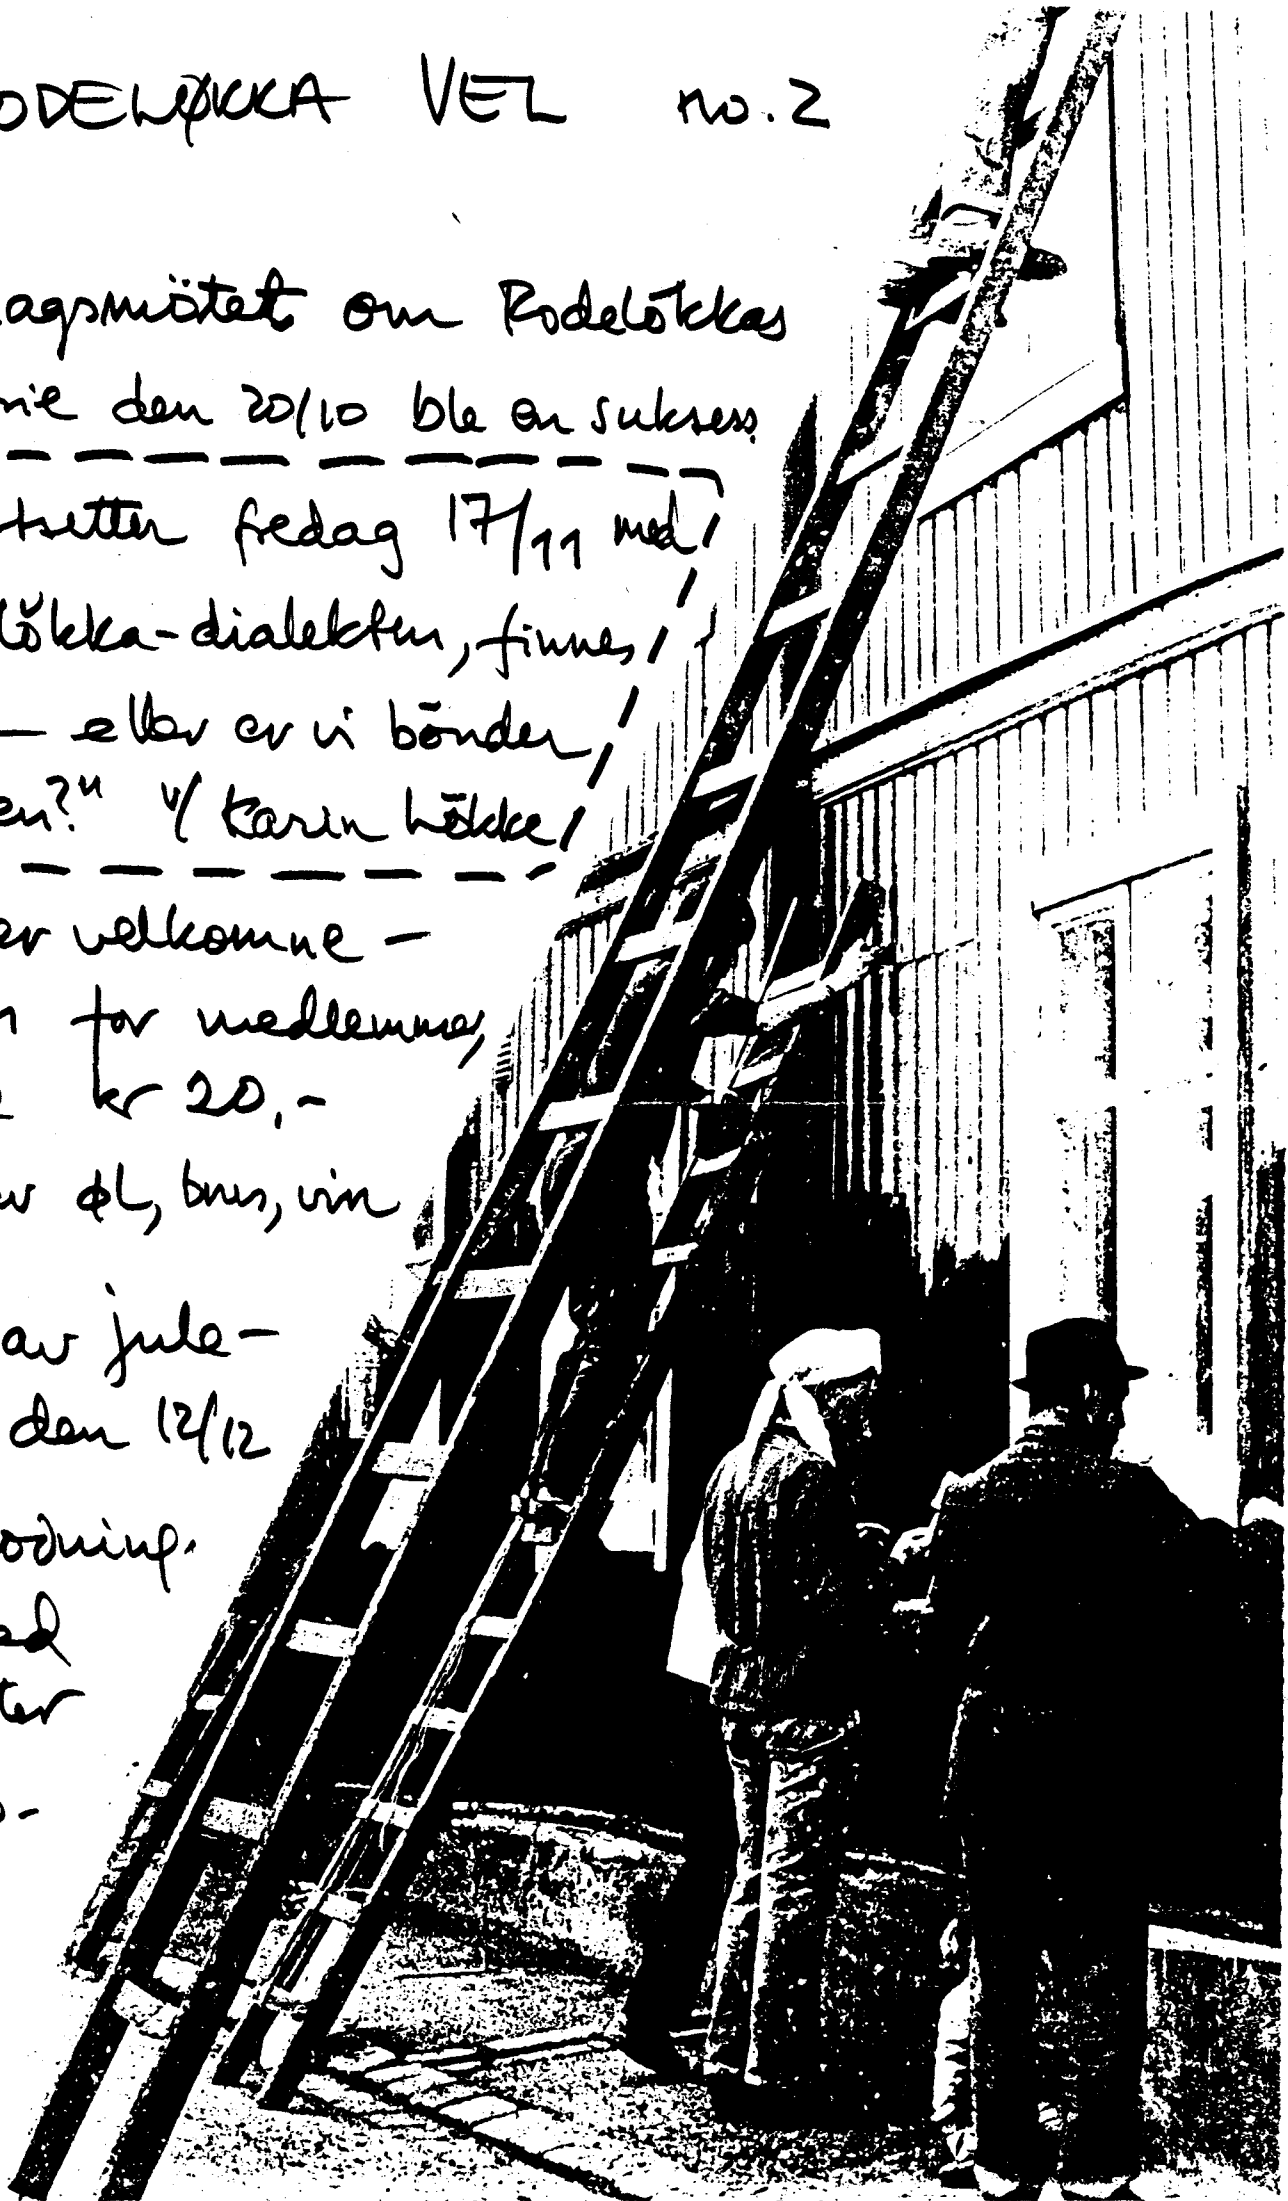 ODELØKKA VEL no.2
agsmötet om Rodelökkas
rie den 20/10 ble en suksess
tsetter fredag 17/11 med
lökka-dialekten, finnes
— eller er vi bönder
en?" v/ Karin Lökke
er velkomne —
n for medlemmer,
kr 20,-
øl, brus, vin
av jule-
den 12/12
odning.
ed
ter